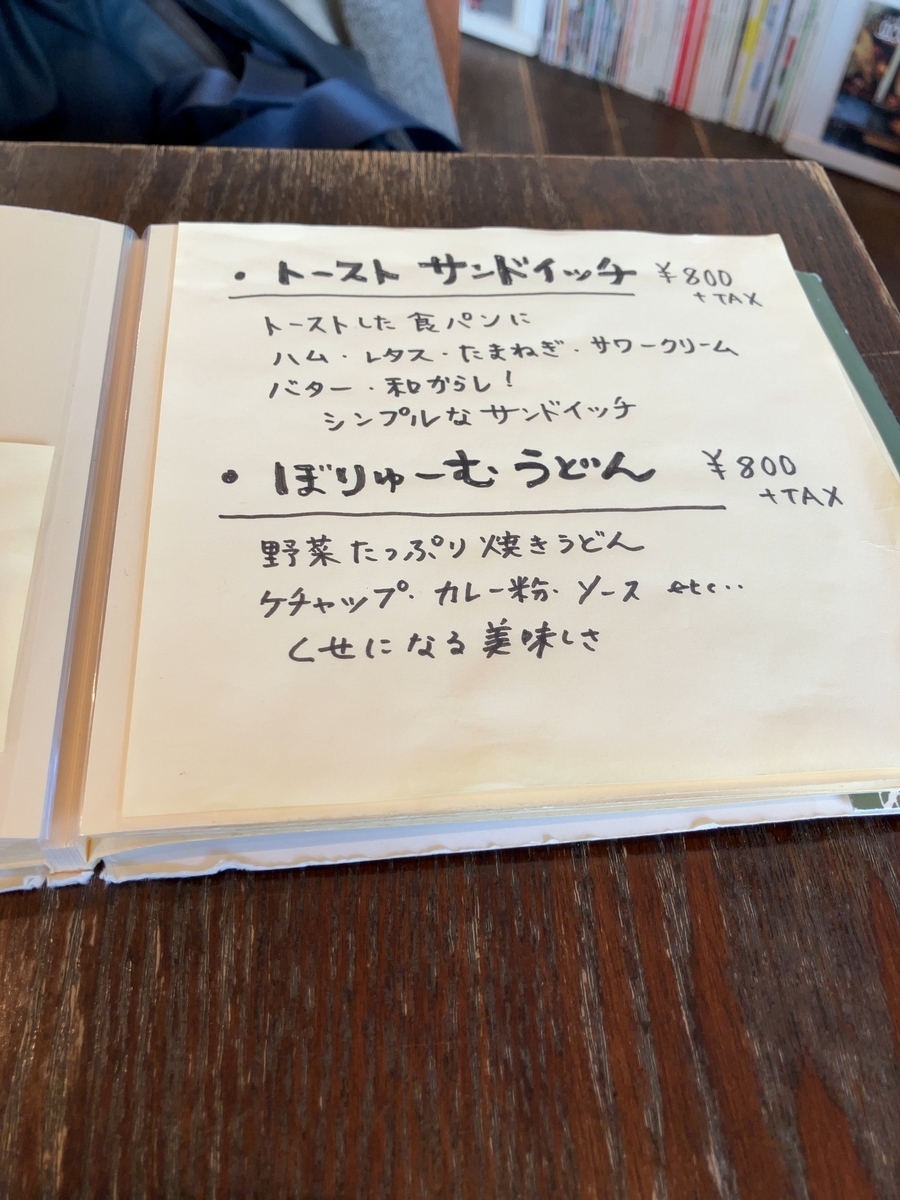 ・トースト サンドイッチ ¥800
+TAX
トーストした食パンに
ハム・レタス・たまねぎ・サワークリーム
バター・和からし!
シンプルなサンドイッチ
・ぼりゅーむうどん ¥800
+TAX
野菜たっぷり焼きうどん
ケチャップ・カレー粉・ソース etc‥
くせになる美味しさ